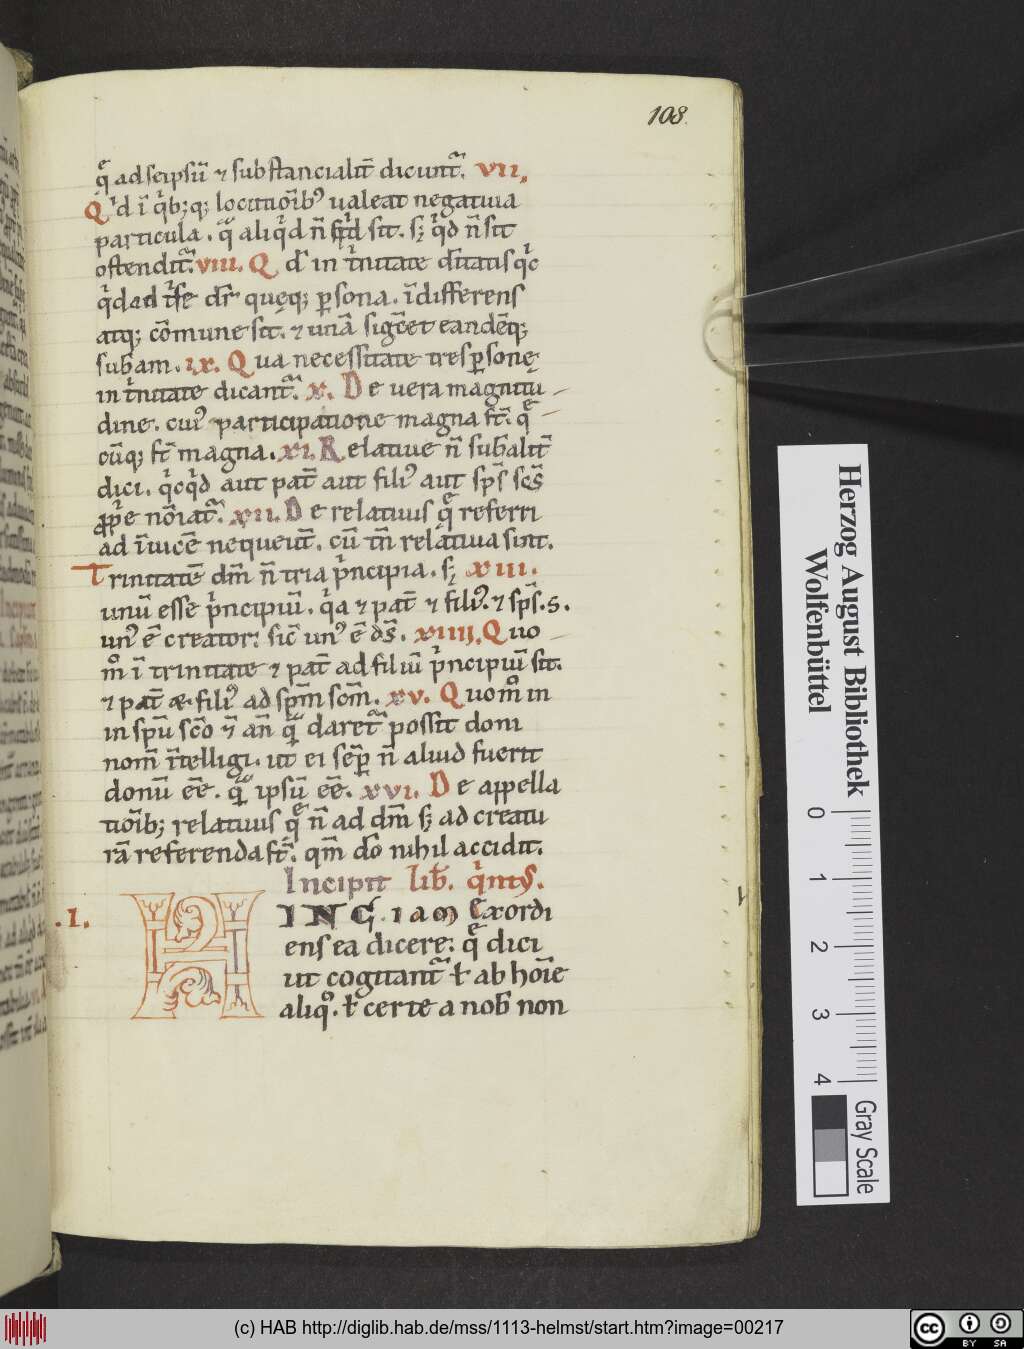 108.
q̄ ad seipsū ⁊ substancialit̄ dicunt̃. VII.
Qͥd ī qͥb;q; locutiōib᾽ ualeat negatiua
particula. q̃ aliqͥd n̄ sit. sꝫ qͥd n̄ sit
ostendit̃. VIII. Qd in tͥnitate
quęq; ꝑsona. īdifferens
atq; cōmune sit. ⁊ unā eandēq;
subam. IX. Qua necessitate tres ꝑsonę
in tͥnitate dicant̃. X. De uera magnitu
dine. cui᾽ participatione magna st̄. q̄
cūq; st̄ magna. XI. Relatiue n̄ subalit̄
dici. qͥcqͥd aut pat̄ aut fili᾽ aut sp̄s sc̄s
nōīat̃. XII. De relatiuis q̄ referri
ad īuicē nequeūt. cū tn̄ relatiua sint.
Trinitatē dm̄ n̄ tria pͥncipia. sꝫ XIII.
unū esse pͥncipiū. qͥa ⁊ pat̄ ⁊ fili᾽. ⁊ sp̄s. s.
un᾽ ē creator: sic un᾽ ē ds̄. XIIII. Quo
mͦ ī trinitate ⁊ pat̄ ad filiū pͥncipiū sit.
⁊ pat̄ & fili᾽ ad sp̄m scm̄. XV. Quomͦ in
in spū scō ⁊ an̄ q̃ daret̃ possit doni
nom̄ ītelligi. ut ei sēꝑ n̄ aliud fuerit
donū ēē. q̃ ipsū ēē. XVI. De appella
tiōib; relatiuis q̄ n̄ ad dm̄ sꝫ ad creatu
rā referenda st̄. qm̄ dō nihil accidit.
Incipit lib̄. qͥntꝰ.
.I. HINC. IAM Exordi
ens ea dicere: q̄ dici
ut cogitant̃ ł ab hoīe
aliqͦ. ł certe a nob̄ non
Herzog August Bibliothek
Wolfenbüttel
0 1 2 3 4
Gray Scale
(c) HAB http://diglib.hab.de/mss/1113-helmst/start.htm?image=00217
cc BY SA